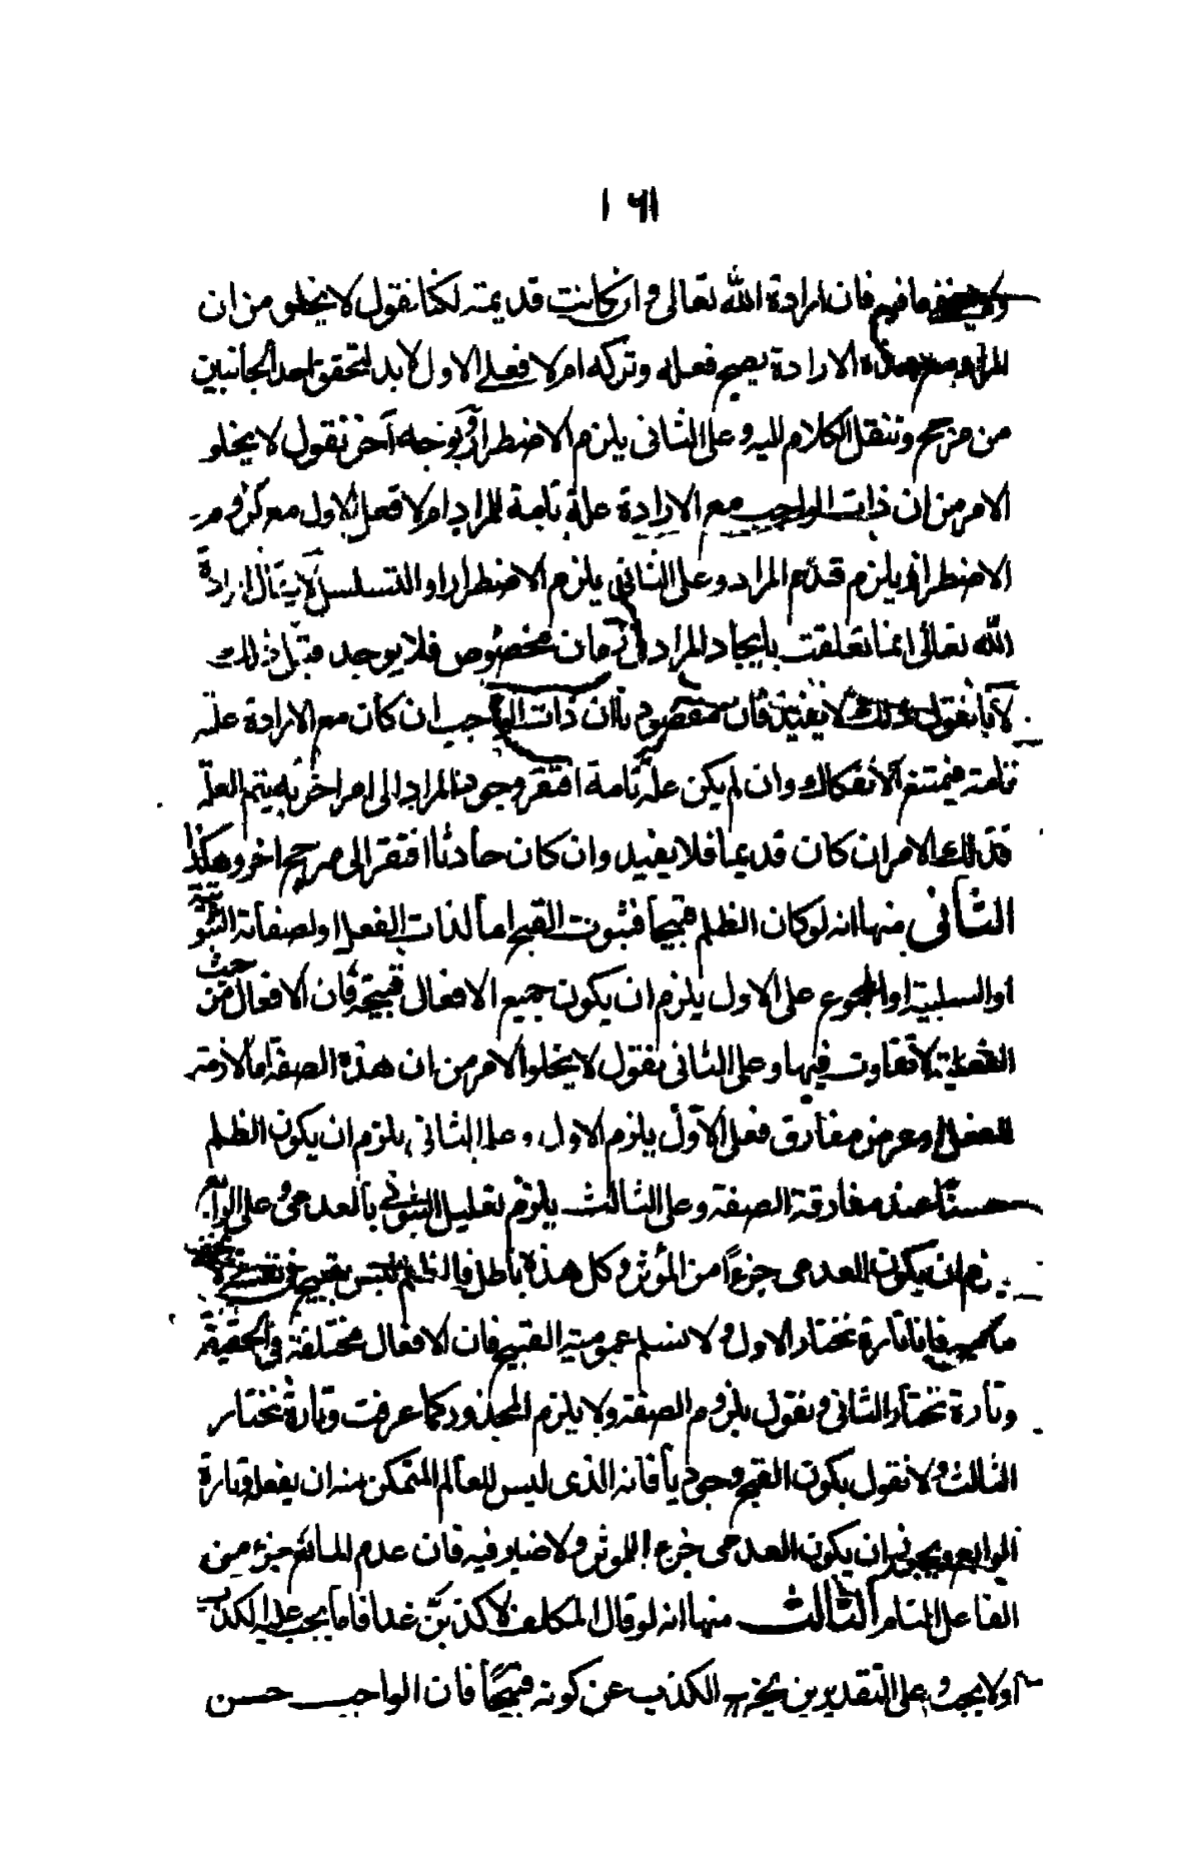 ١٦١
ولا يخفى ما فيه فان ارادة الله تعالى وان كانت قديمة لكنا نقول لا يخلو من ان
المراد مع هذه الارادة يصح فعله وتركه ام لا فعلى الاول لا بد لتحقق احد الجانبين
من مرجح وننقل الكلام اليه وعلى الثانى يلزم الاضطرار وبوجه آخر نقول لا يخلو
الامر من ان ذات الواجب مع الارادة علة تامة للمراد ام لا فعلى الاول مع
الاضطرار يلزم قدم المراد وعلى الثانى يلزم الاضطرار او التسلسل لا يقال ارادة
الله تعالى انما تعلقت بايجاد المراد فى زمان مخصوص فلا يوجد قبل ذلك
لانا نقول ذلك لا يفيد فان مقصودنا ان ذات الواجب ان كان مع الارادة علة
تامة فيمتنع الانفكاك وان لم يكن علة تامة افتقر وجود المراد الى امر اخر به يتم العلة
فذلك الامر ان كان قديما فلا يفيد وان كان حادثا افتقر الى مرجح اخر وهكذا
الثانى منها انه لو كان الظلم قبيحا فثبوت القبح اما لذات الفعل او لصفاته الثبوتية
او السلبية او المجموع على الاول يلزم ان يكون جميع الافعال قبيحة فان الافعال من حيث
الفعلية لا تفاوت فيها وعلى الثانى نقول لا يخلو الامر من ان هذه الصفة اما لازمة
للفعل او عرض مفارق فعلى الاول يلزم الاول وعلى الثانى يلزم ان يكون الظلم
حسنا عند مفارقة الصفة وعلى الثالث يلزم تعليل الثبوتى بالعدمى وعلى الرابع
يلزم ان يكون العدمى جزءا من المؤثر وكل هذه باطل فالظلم ليس بقبيح فى نفسه ولا يخفى
ما فيه فانا تارة نختار الاول ولا نسلم عمومية القبح فان الافعال مختلفة فى الحقيقة
وتارة نختار الثانى ونقول بلزوم الصفة ولا يلزم المحذور كما عرفت وتارة نختار
الثالث ولا نقول بكون القبح وجوديا فانه الذى ليس للعالم المتمكن منه ان يفعله وتارة
الرابع ويجوز ان يكون العدمى جزء المؤثر ولا ضير فيه فان عدم المانع جزء من
الفاعل التام الثالث منها انه لو قال المكلف لاكذبن غدا فاما يجب عليه الكذب
او لا يجب وعلى التقديرين يخرج الكذب عن كونه قبيحا فان الواجب حسن